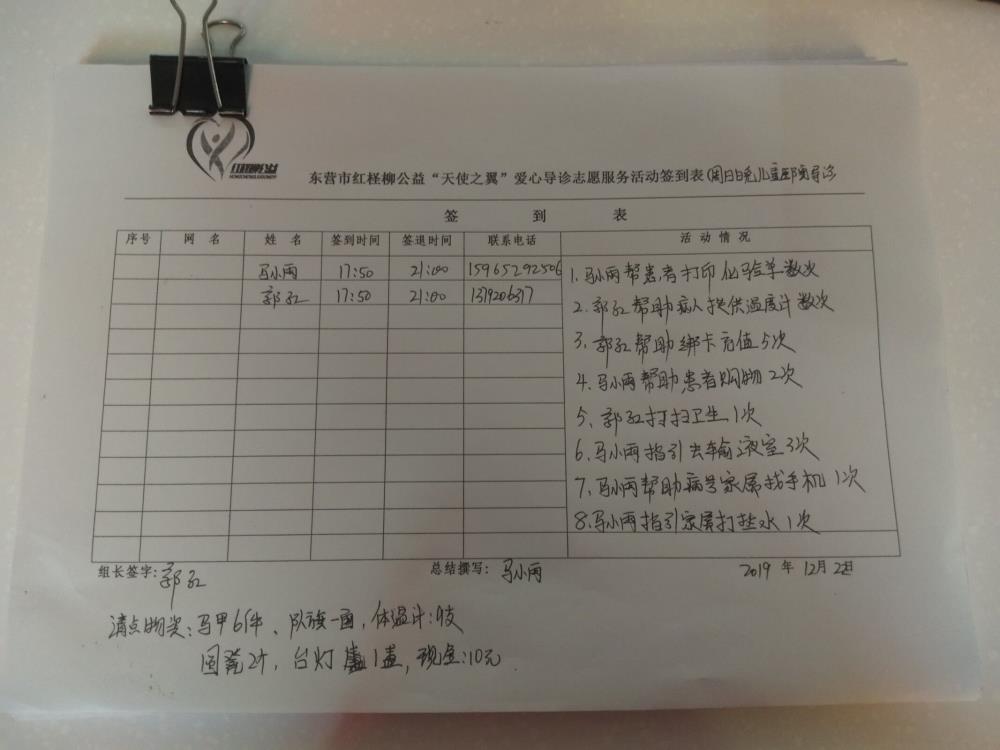 红柽柳公益
东营市红柽柳公益“天使之翼”爱心导诊志愿服务活动签到表(周日晚儿童医院导诊
签 到 表
序号 网 名 姓 名 签到时间 签退时间 联系电话 活 动 情 况
马小雨 17:50 21:00 15965292506 1.马小雨帮患者打印化验单数次
郭红 17:50 21:00 2.郭红帮助病人提供温度计数次
3.郭红帮助绑卡充值5次
4.马小雨帮助患者购物2次
5、郭红打扫卫生1次
6.马小雨指引去输液室3次
7.马小雨帮助病号家属找手机1次
8.马小雨指引家属打挂水1次
组长签字:郭红 总结撰写:马小雨 2019 年 12月
清点物资:马甲6件、队旗一面,体温计:9支
圆凳2个,台灯 1盏,现金:10元.